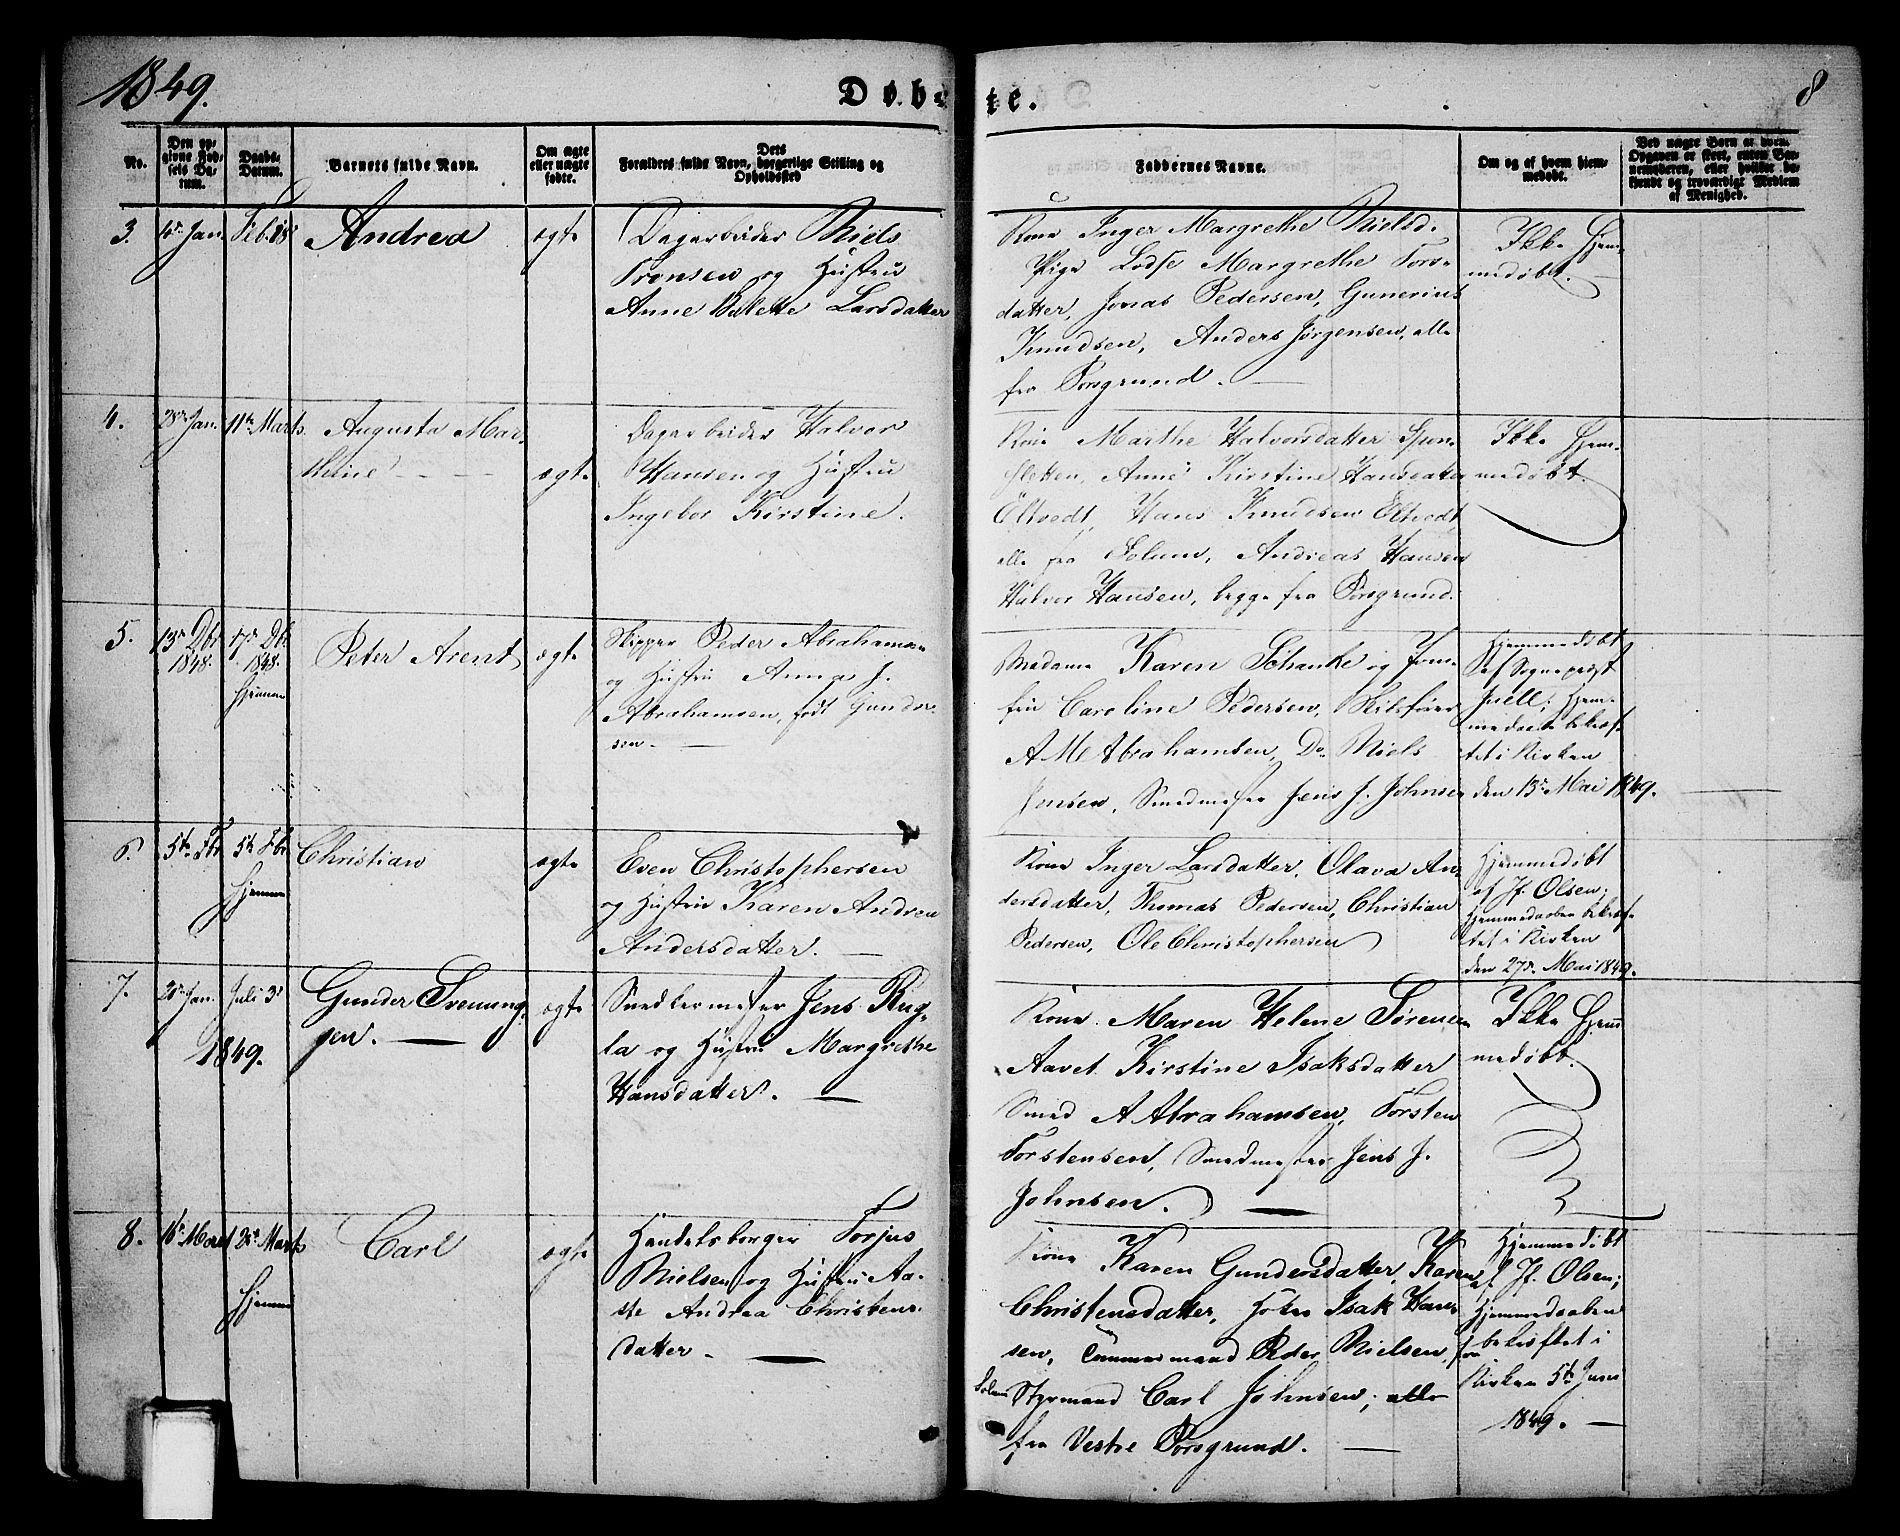 1849.
Døbte.
8
No.
Den opgivne Fødsels Datum.
Daabs-Datum.
Barnets fulde Navn.
Om ægte eller uægte fødte.
Dets Forældres fulde Navn, borgerlige Stilling og Opholdssted
Faddernes Navne.
Om og af hvem hjemmedøbt.
Ved uægte Børn at
Opgaven er skeet, enten
eller hvilket
og troværdigt Medlem
af Menighed.
3.
Jan.
Feb. 18
Andrea
ægte
Dagarbeider Niels
Tronsen og Hustru
Anne Larsdatter
Kone Inger Margrethe Nielsd.
Pige Margrethe Tors-
datter, Jonas Pedersen, Gunerius
Knudsen, Anders Jørgensen, alle
fra Porsgrund.
Ikke Hjem-
medøbt.
4.
28de Jan.
11te Marts
Augusta Mar-
thine
ægte
Dagarbeider Halvor
Hansen og Hustru
Ingebor Kirstine.
Kone Marthe Halvorsdatter
Anne Kirstine Hansdatter
Eltvedt, Hans Knudsen Eltvedt,
alle fra Solum, Andreas Hansen
Halvor Hansen, begge fra Porsgrund.
Ikke Hjem-
medøbt.
5.
13de Dbr
1848.
17de Dbr
1848.
Hjemme
Peter Arent
ægte
Skipper Peder Abrahamsen
og Hustru Anna J.
Abrahamsen, født Gunder-
sen.
Madame Karen Schanke og Jom-
fru Caroline Pedersen, Skibsfører
A M Abrahamsen, Do. Niels
Jensen, Smedmester Jens J. Johnsen
Hjemmedøbt
af Sogneprest
Juell; Hjem-
medaaben bekræf-
tet i Kirken
den 13de Mai 1849.
6.
5te Fbr
5te Fbr
Hjemme
Christian
ægte
Even Christophersen
og Hustru Karen Andrea
Andersdatter.
Kone Inger Larsdatter, Olava An-
dersdatter, Thomas Pedersen, Christian
Pedersen, Ole Christophersen
Hjemmedøbt
af Jf. Olsen;
Hjemmedaaben bekræf-
tet i Kirken
den 27de Mai 1849.
7.
Jan.
Juli 3
1849.
Gunder Svenning-
sen.
ægte
Snedkermester Jens Rug-
la og Hustru Margrethe
Hansdatter.
Kone Maren Helene Sørensen
Aavet Kirstine Isaksdatter
Smed A Abrahamsen, Torsten
Torstensen, Smedmester Jens J.
Johnsen.
Ikke Hjem
medøbt.
8.
16de Marts
Marts
Hjemme
Carl
ægte
Handelsborger Torjus
Nielsen og Hustru Aa-
ste Andrea Christens-
datter.
Kone Karen Gundersdatter, Karen
Christensdatter, Isak Han-
sen, Tømmermand Peder Nielsen, fra
Solum Styrmand Carl Johnsen; alle
fra Vestre Porsgrund.
Hjemmedøbt
af Jf. Olsen;
Hjemmedaaben
bekræftet i
Kirken 5te Juni
1849.